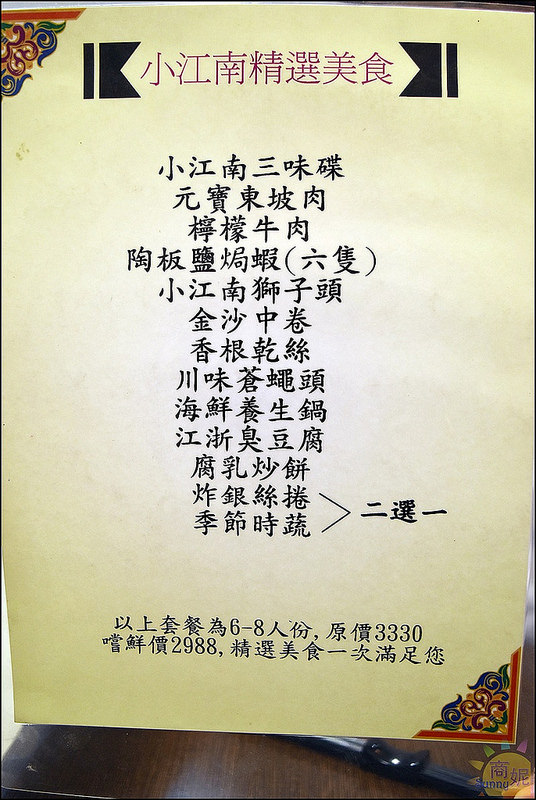 小江南精選美食
小江南三味碟
元寶東坡肉
檸檬牛肉
陶板鹽焗蝦(六隻)
小江南獅子頭
金沙中卷
香根乾絲
川味蒼蠅頭
海鮮養生鍋
江浙臭豆腐
腐乳炒餅
炸銀絲捲
季節時蔬
二選一
以上套餐為6-8人份,原價3330
嚐鮮價2988,精選美食一次滿足您
商妮
Sunnu